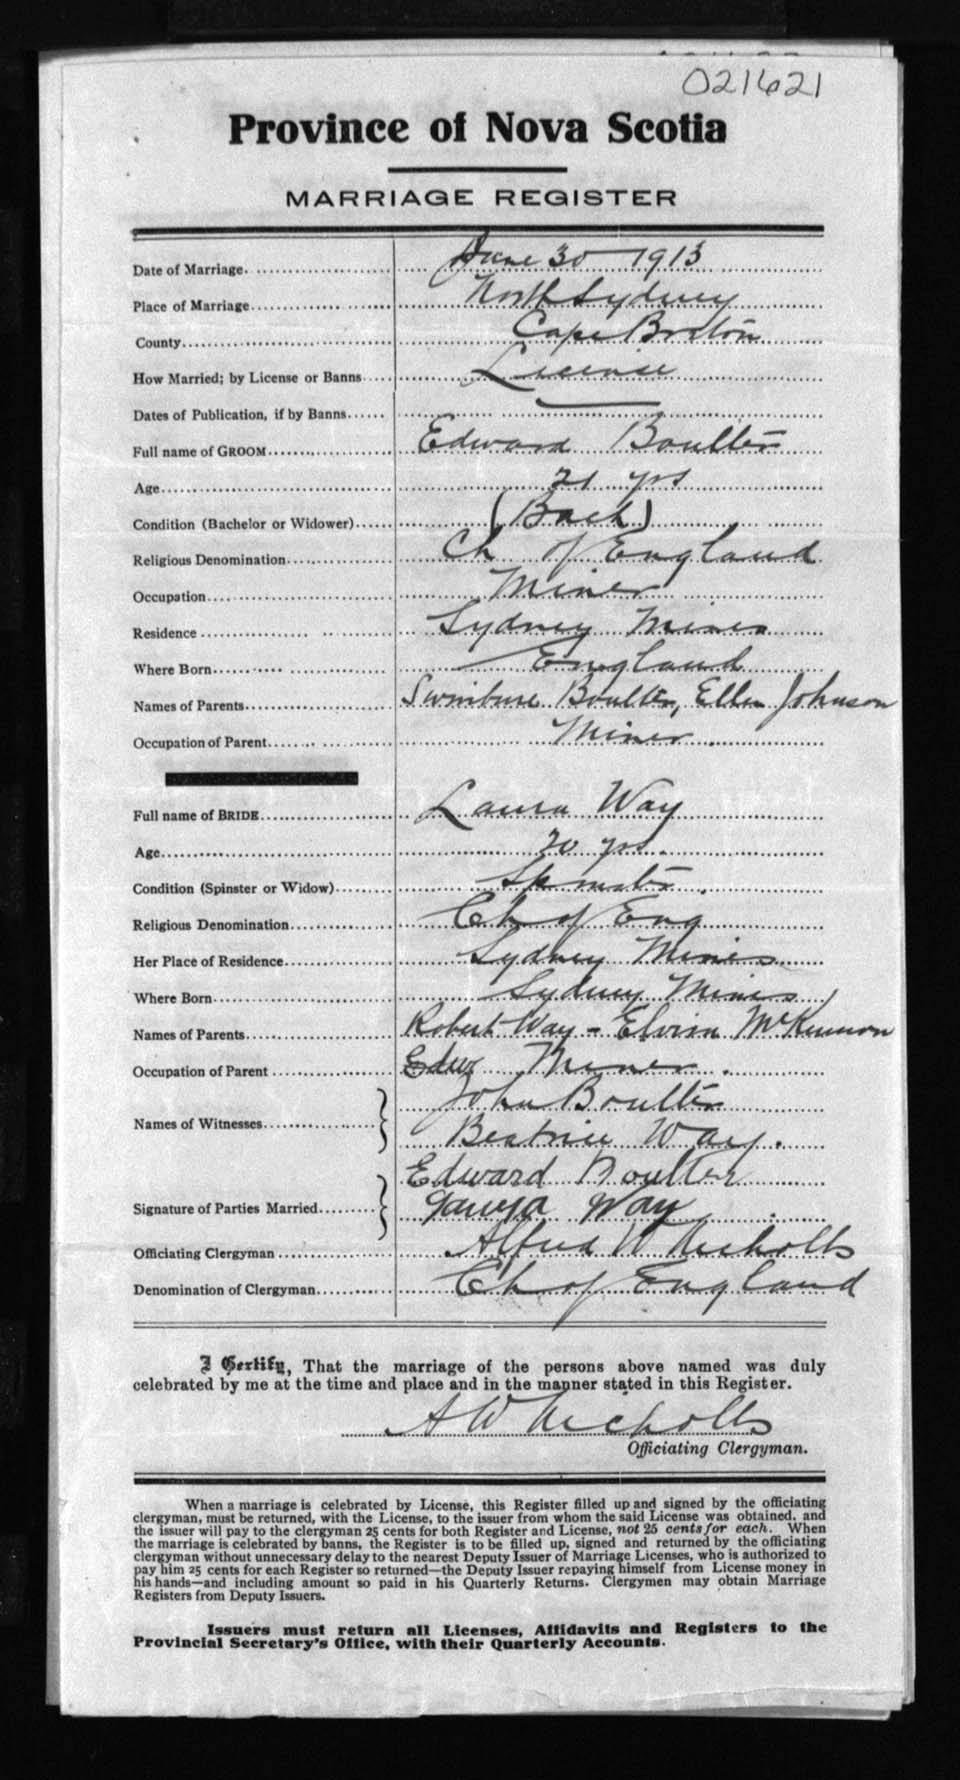 021621
Province of Nova Scotia
MARRIAGE REGISTER
Date of Marriage June 30 1913
Place of Marriage North Sydney
County Cape Breton
How Married; by License or Banns License
Dates of Publication, if by Banns
Full name of GROOM Edward Boulter
Age 21 yrs
Condition (Bachelor or Widower) (Bach)
Religious Denomination Ch of England
Occupation Miner
Residence Sydney Mines
Where Born England
Names of Parents Boulter, Ellen Johnson
Occupation of Parent Miner
Full name of BRIDE Laura Way
Age 20 yrs.
Condition (Spinster or Widow) Spinster
Religious Denomination Ch of Eng
Her Place of Residence Sydney Mines
Where Born Sydney Mines
Names of Parents Robert Way - McKinnon
Occupation of Parent Edw Miner
Names of Witnesses John Boulter
Beatrice Way.
Edward Boulter
Signature of Parties Married Laura Way
Officiating Clergyman Alfred W Nicholls
Denomination of Clergyman Ch of England
I Certify, That the marriage of the persons above named was duly
celebrated by me at the time and place and in the manner stated in this Register.
A W Nicholls
Officiating Clergyman.
When a marriage is celebrated by License, this Register filled up and signed by the officiating
clergyman, must be returned, with the License, to the issuer from whom the said License was obtained, and
the issuer will pay to the clergyman 25 cents for both Register and License, not 25 cents for each. When
the marriage is celebrated by banns, the Register is to be filled up, signed and returned by the officiating
clergyman without unnecessary delay to the nearest Deputy Issuer of Marriage Licenses, who is authorized to
pay him 25 cents for each Register so returned—the Deputy Issuer repaying himself from License money in
his hands—and including amount so paid in his Quarterly Returns. Clergymen may obtain Marriage
Registers from Deputy Issuers.
Issuers must return all Licenses, Affidavits and Registers to the
Provincial Secretary's Office, with their Quarterly Accounts.